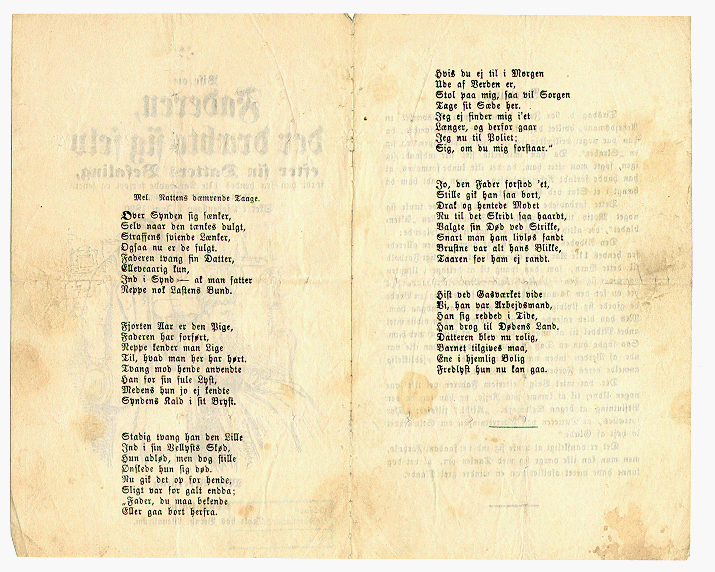 Mel. Nattens dæmrende Taage.
Over Synden sig sænker,
Selv naar den tænkes dulgt,
Straffens sviende Lænker,
Ogsaa nu er de fulgt.
Faderen tvang sin Datter,
Elleveaarig kun,
Ind i Synd — ak man fatter
Neppe nok Lastens Bund.
Fjorten Aar er den Pige,
Faderen har forført,
Neppe kender man Lige
Til, hvad man her har hørt.
Tvang mod hende anvendte
Han for sin fule Lyst,
Medens hun jo ej kendte
Syndens Kald i sit Bryst.
Stadig tvang han den Lille
Ind i sin Vellysts Skød,
Hun adlød, men dog stille
Ønskede hun sig død.
Nu gik det op for hende,
Sligt var for galt endda;
„Fader, du maa bekende
Eller gaa bort herfra.
Hvis du ej til i Morgen
Ude af Verden er,
Stol paa mig, saa vil Sorgen
Tage sit Sæde her.
Jeg ej finder mig i'et
Længer, og derfor gaar
Jeg nu til Poliet;
Sig, om du mig forstaar.“
Jo, den Fader forstod 'et,
Stille gik han saa bort,
Drak og hentede Modet
Nu til det Skridt saa haardt,
Valgte sin Død ved Strikke,
Snart man ham livløs fandt.
Brustne var alt hans Blikke,
Taaren for ham ej randt.
Hist ved Gasværket vide
Vi, han var Arbejdsmand,
Han sig redded i Tide,
Han drog til Dødens Land.
Datteren blev nu rolig,
Barnet tilgives maa,
Ene i hjemlig Bolig
Fredlyst hun nu kan gaa.